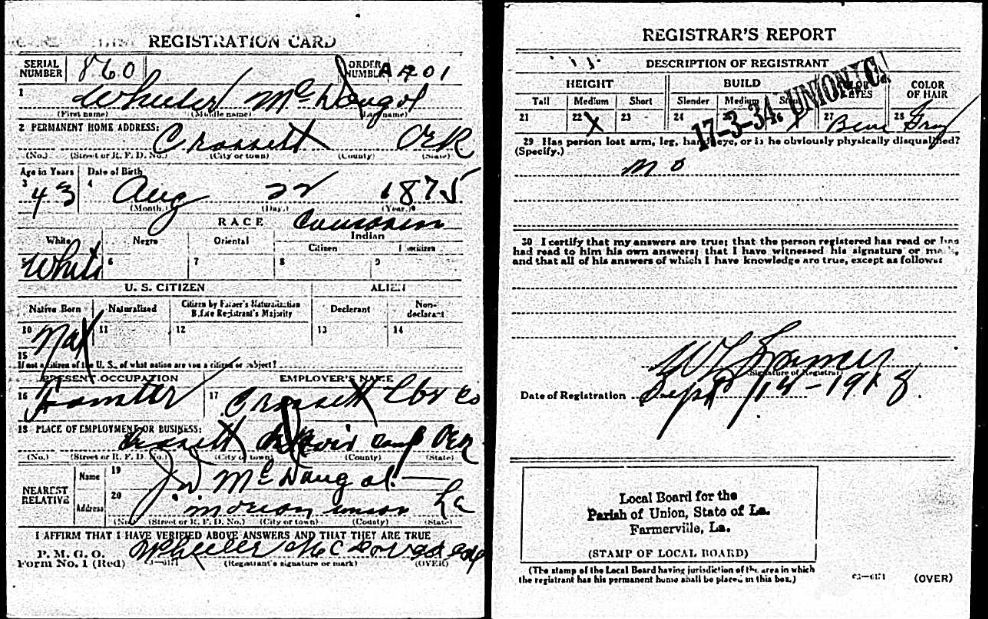 REGISTRATION CARD
SERIAL NUMBER 860 ORDER NUMBER A 401
1 Wheeler McDougal
(First name) (Middle name) (Last name)
2 PERMANENT HOME ADDRESS:
Crossett Ark
(No.) (Street or R. F. D. No.) (City or town) (County) (State)
Age in Years Date of Birth
3 43 4 Aug 22 1875
(Month.) (Day.) (Year.)
RACE Caucasian
White Negro Oriental Indian
Citizen Noncitizen
White 6 7 8 9
U. S. CITIZEN ALIEN
Native Born Naturalized Citizen by Father's Naturalization Before Registrant's Majority Declarant Non-declarant
10 11 12 13 14
15
If not a citizen of the U. S., of what nation are you a citizen or subject?
PRESENT OCCUPATION EMPLOYER'S NAME
16 17 Crossett Lbr Co
18 PLACE OF EMPLOYMENT OR BUSINESS:
Crossett Camp Ark
(No.) (Street or R. F. D. No.) (City or town) (County) (State)
NEAREST RELATIVE
Name 19 McDougal
Address 20 Marion Union La
(No.) (Street or R. F. D. No.) (City or town) (County) (State)
I AFFIRM THAT I HAVE VERIFIED ABOVE ANSWERS AND THAT THEY ARE TRUE
P. M. G. O.
Form No. 1 (Red) 03—6171 Wheeler
(Registrant's signature or mark) (OVER)
REGISTRAR'S REPORT
17-3-34 UNION C
DESCRIPTION OF REGISTRANT
HEIGHT BUILD COLOR OF EYES COLOR OF HAIR
Tall Medium Short Slender Medium Stout
21 22 X 23 24 27 Blue 28 Gray
29 Has person lost arm, leg, hand, eye, or is he obviously physically disqualified?
(Specify.)
no
30 I certify that my answers are true; that the person registered has read or has
had read to him his own answers; that I have witnessed his signature or mark,
and that all of his answers of which I have knowledge are true, except as follows:
(Signature of Registrar)
Date of Registration Sept 12-1918
Local Board for the
Parish of Union, State of La.
Farmerville, La.
(STAMP OF LOCAL BOARD)
(The stamp of the Local Board having jurisdiction of the area in which
the registrant has his permanent home shall be placed in this box.)
03—6171 (OVER)